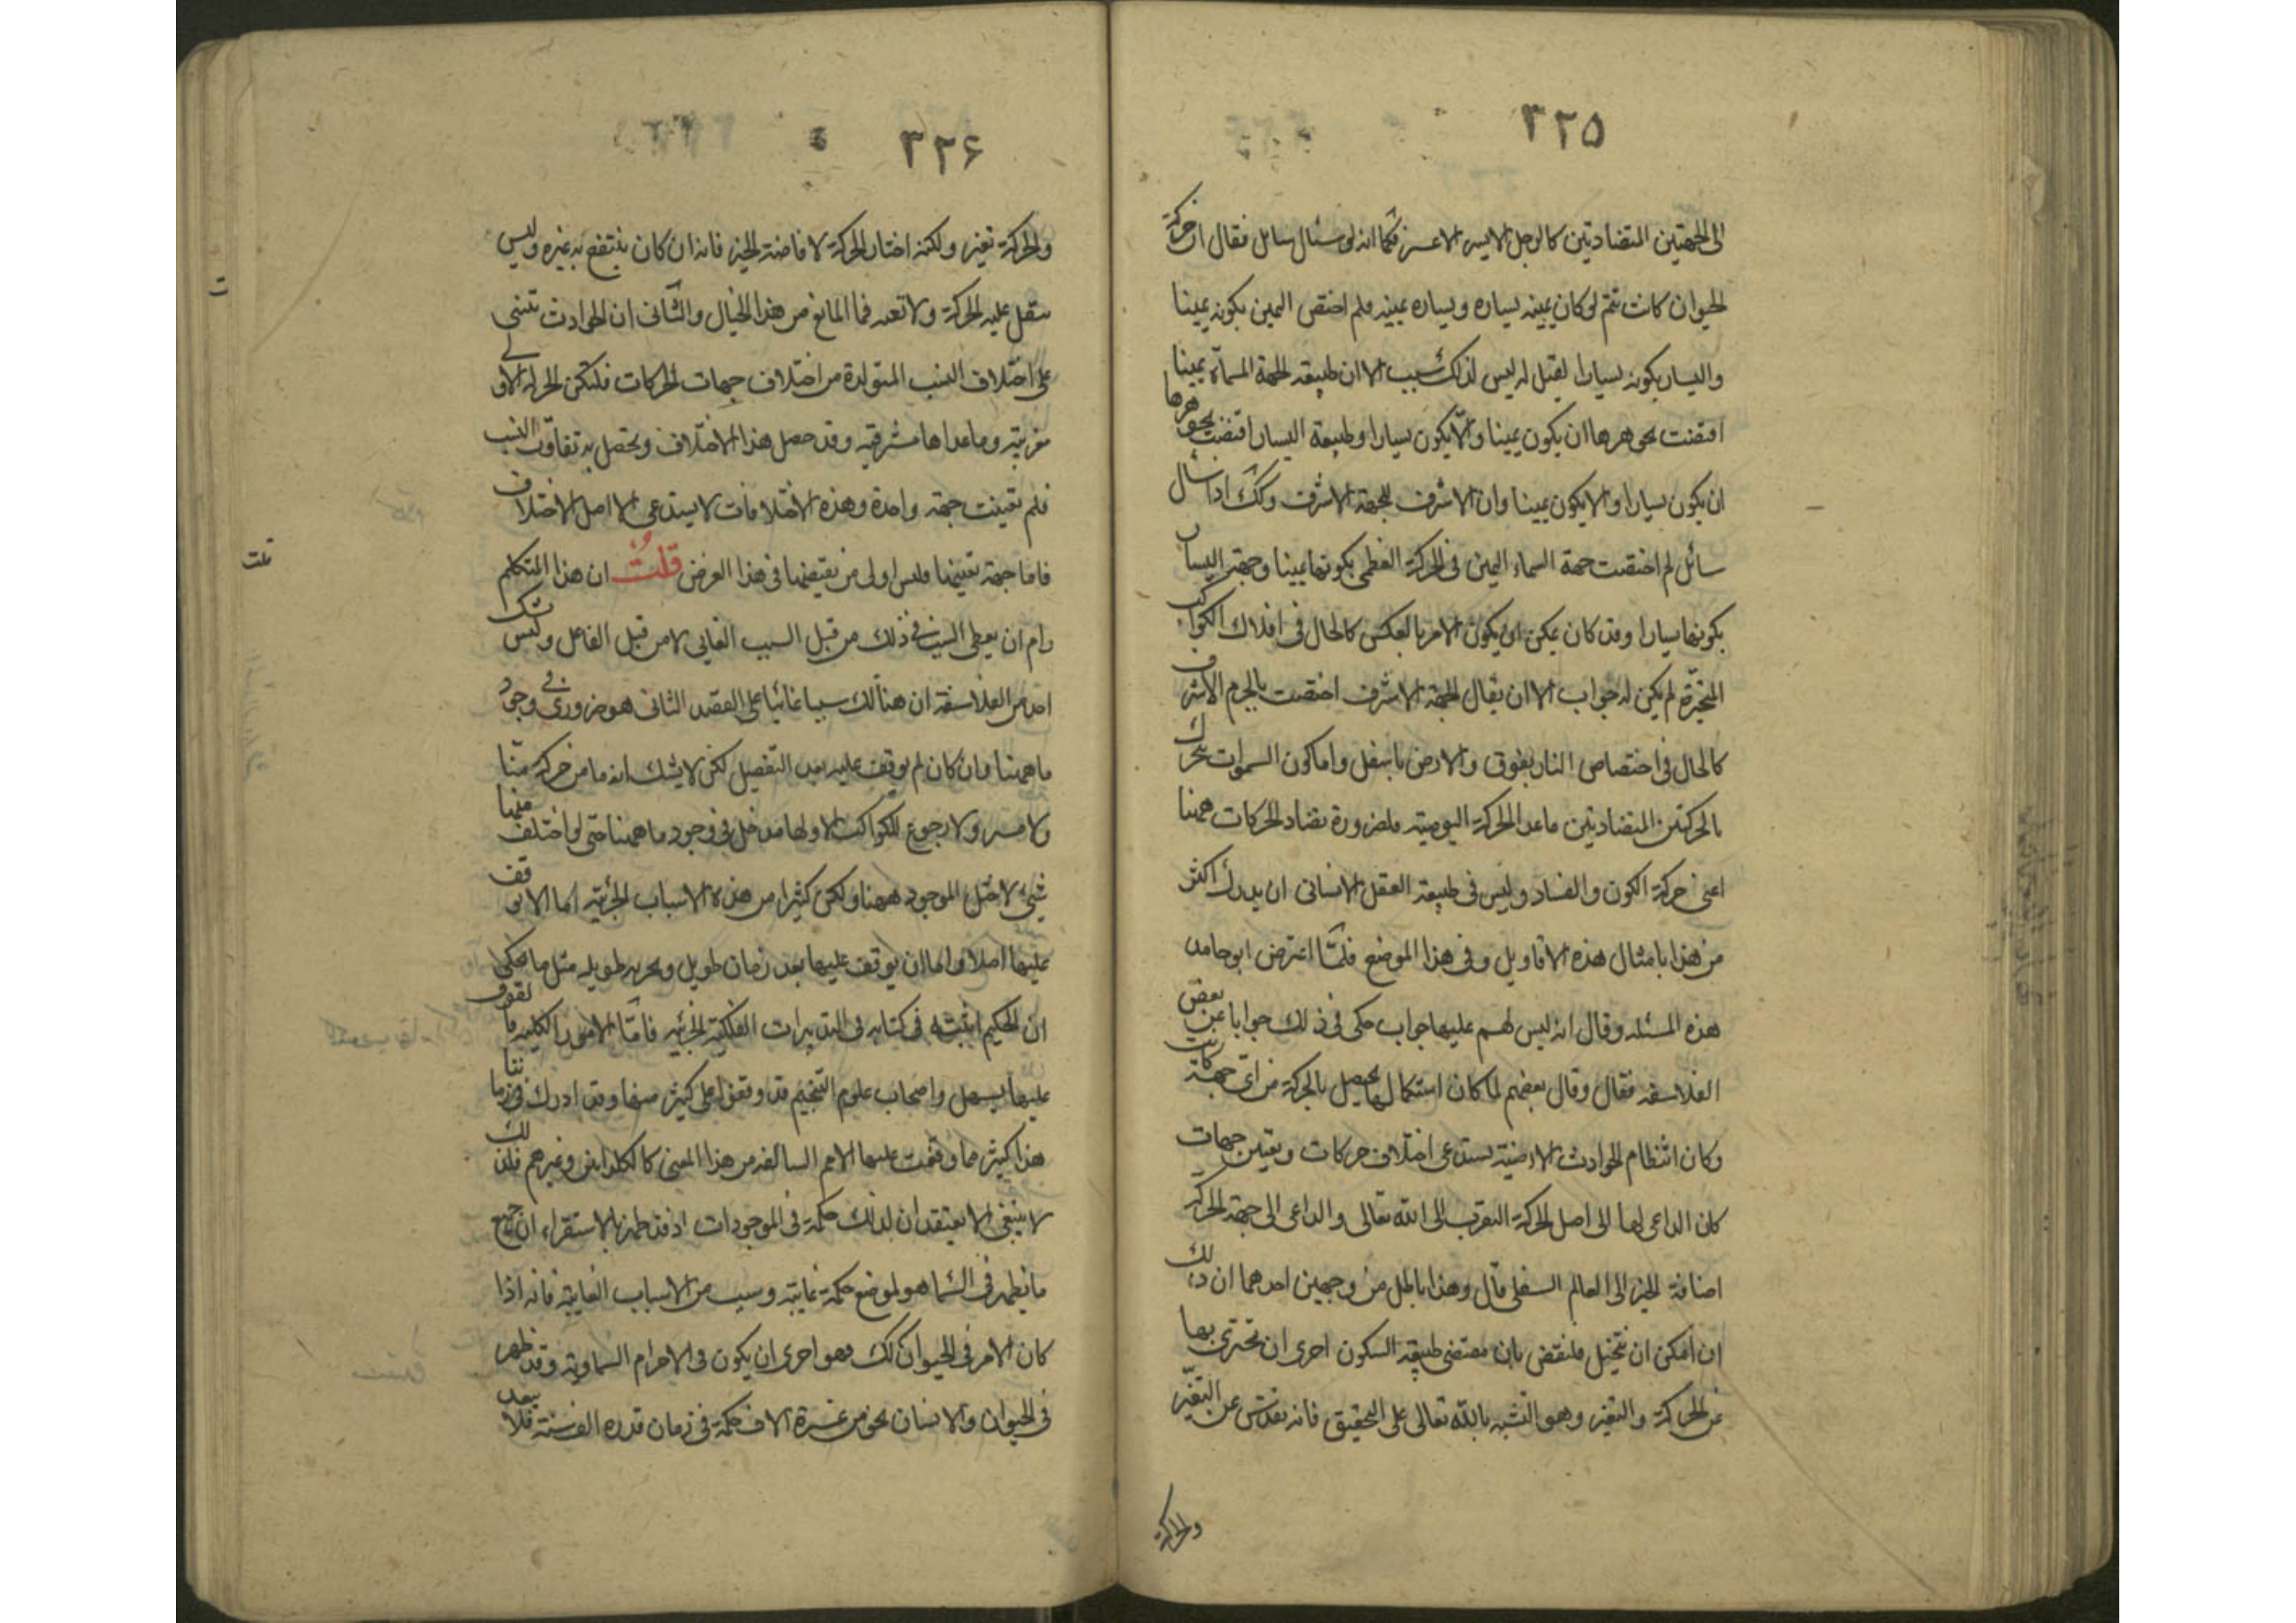 ٣٢٥
الى الجهتين المتضادتين كالرجل الايسر الاعسر فكما انه لو سئال سايل فقال ان حركة
الحيوان كانت تتم لو كان يمينه يساره ويساره يمينه فلم اختص اليمين بكونه يمينا
واليسار بكونه يسارا لقيل له ليس لذلك سبب الا ان طبيعة الجهة المسماة يمينا
اقتضت بجوهرها ان يكون يمينا والا يكون يسارا وطبيعة اليسار اقتضت بجوهرها
ان يكون يسارا والا يكون يمينا وان الاشرف للجهة الاشرف وكك اذا سأل
سائل لم اختصت جهة السماء اليمين فى الحركة العظمى بكونها يمينا وجهة اليسار
بكونها يسارا وقد كان يمكن ان يكون الامر بالعكس كالحال فى افلاك الكواكب
المتحيّرة لم يكن له جواب الا ان يقال الجهة الاشرف اختصت بالجرم الاشرف
كالحال فى اختصاص النار بفوق والارض باسفل واما كون السموات تتحرك
بالحركتين المتضادتين ما عدا الحركة اليومية فلضرورة تضاد الحركات ههنا
اعنى حركة الكون والفساد وليس فى طبيعة العقل الانسانى ان يدرك اكثر
من هذا بامثال هذه الاقاويل وفى هذا الموضع فلمّا اعترض ابو حامد
هذه المسئله وقال انه ليس لهم عليها جواب حكى فى ذلك جوابا عن بعض
الفلاسفه فقال وقال بعضهم لما كان استكمالها يحصل بالحركة من اى جهة كانت
وكان انتظام الحوادث الارضية يستدعى اختلاف حركات وتعين جهات
كان الداعى لها الى اصل الحركة التقرب الى الله تعالى والداعى الى جهة الحركة
افاضة الخير الى العالم السفلى قال وهذا باطل من وجهين احدهما ان ذلك
ان امكن ان يتخيل فلنقض بان مقتضى طبيعة السكون احرى ان تحترى بها
عن الحركة والتغير وهو التشبه بالله تعالى على التحقيق فانه تقدس عن التغيّر
والحركة
٣٢٦
والحركة تغير ولكنه اختار الحركة لافاضة الخير فانه ان كان ينتفع به غيره وليس
يثقل عليه الحركة ولا تتعبه فما المانع من هذا الخيال والثّانى ان الحوادث تبتنى
على اختلاف النسب المتولدة من اختلاف جهات الحركات فلتكن الحركة الاولى
مغربيّة وما عداها مشرقيه وقد حصل هذا الاختلاف ويحصل به تفاوت النسب
فلم تعينت جهة واحدة وهذه الاختلافات لا يستدعى الا اصل الاختلاف
فاما جهة بعينها فليس اولى من نقيضها فى هذا الغرض قلتُ ان هذا المتكلم
رام ان يعطى السبب فى ذلك من قبل السبب الغايى لا من قبل الفاعل وليس يشك
احد من الفلاسفة ان هنالك سببا غائيا على القصد الثانى هو ضرورى فى وجود
ما ههنا وان كان لم يوقف عليه بعد التفصيل لكن لا يشك انه ما من حركة منّا
ولا مسير ولا رجوع للكواكب الا ولها مدخل فى وجود ما ههنا حتى لو اختلف منها
شىء لاختل الموجود ههنا ولكن كثيرا من هذه الاسباب الجزئية اما الا يوقف
عليها اصلا واما ان يوقف عليها بعد زمان طويل وتجربه طويله مثل ما يحكى
ان الحكيم اثبته فى كتابه فى التدبيرات الفلكية الجزئيه فامّا الامور الكليه فالوقوف
عليها يسهل واصحاب علوم التنجيم قد وقفوا على كثير منها وقد ادرك فى زماننا
هذا كثير مما وقفت عليها الامم السالفه من هذا المعنى كالكلدانى وغيرهم فلذلك
لا ينبغى الا يعتقد ان لذلك حكمة فى الموجودات اذ قد ظهر بالاستقراء ان جميع
ما يظهر فى السّماء هو لموضع حكمة غايية وسبب من الاسباب الغايية فانه اذا
كان الامر فى الحيوان كك فهو احرى ان يكون فى الاجرام السماوية وقد ظهر
فى الحيوان والانسان نحو من عشرة الاف حكمة فى زمان قدره الف سنة فلا يبعد
ت
قلت